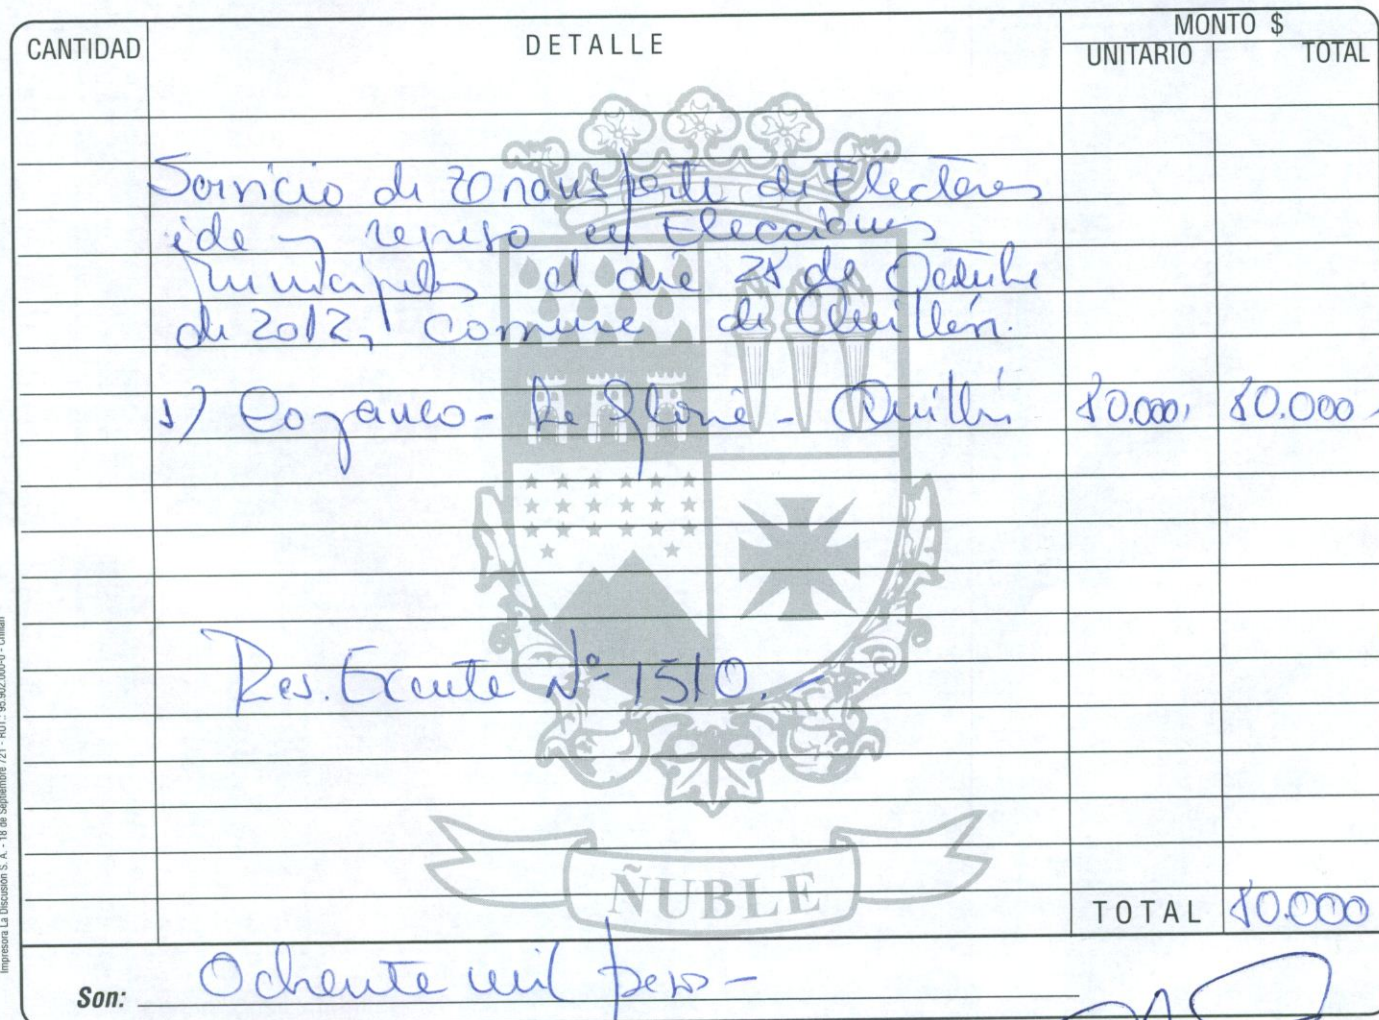 CANTIDAD DETALLE MONTO $
UNITARIO TOTAL
Servicio de Transporte de Electores
ida y regreso en Elecciones
Municipales el día 28 de Octubre
de 2012, Comuna de Quillón.
1) Coyanco - La Gloria - Quillón 80.000, 80.000.-
Res. Exenta N° 1510.-
ÑUBLE
TOTAL 80.000
Son: Ochenta mil pesos-
Impresora La Discusión S. A. - 18 de Septiembre 721 - RUT.: 95.902.000-0 - Chillán